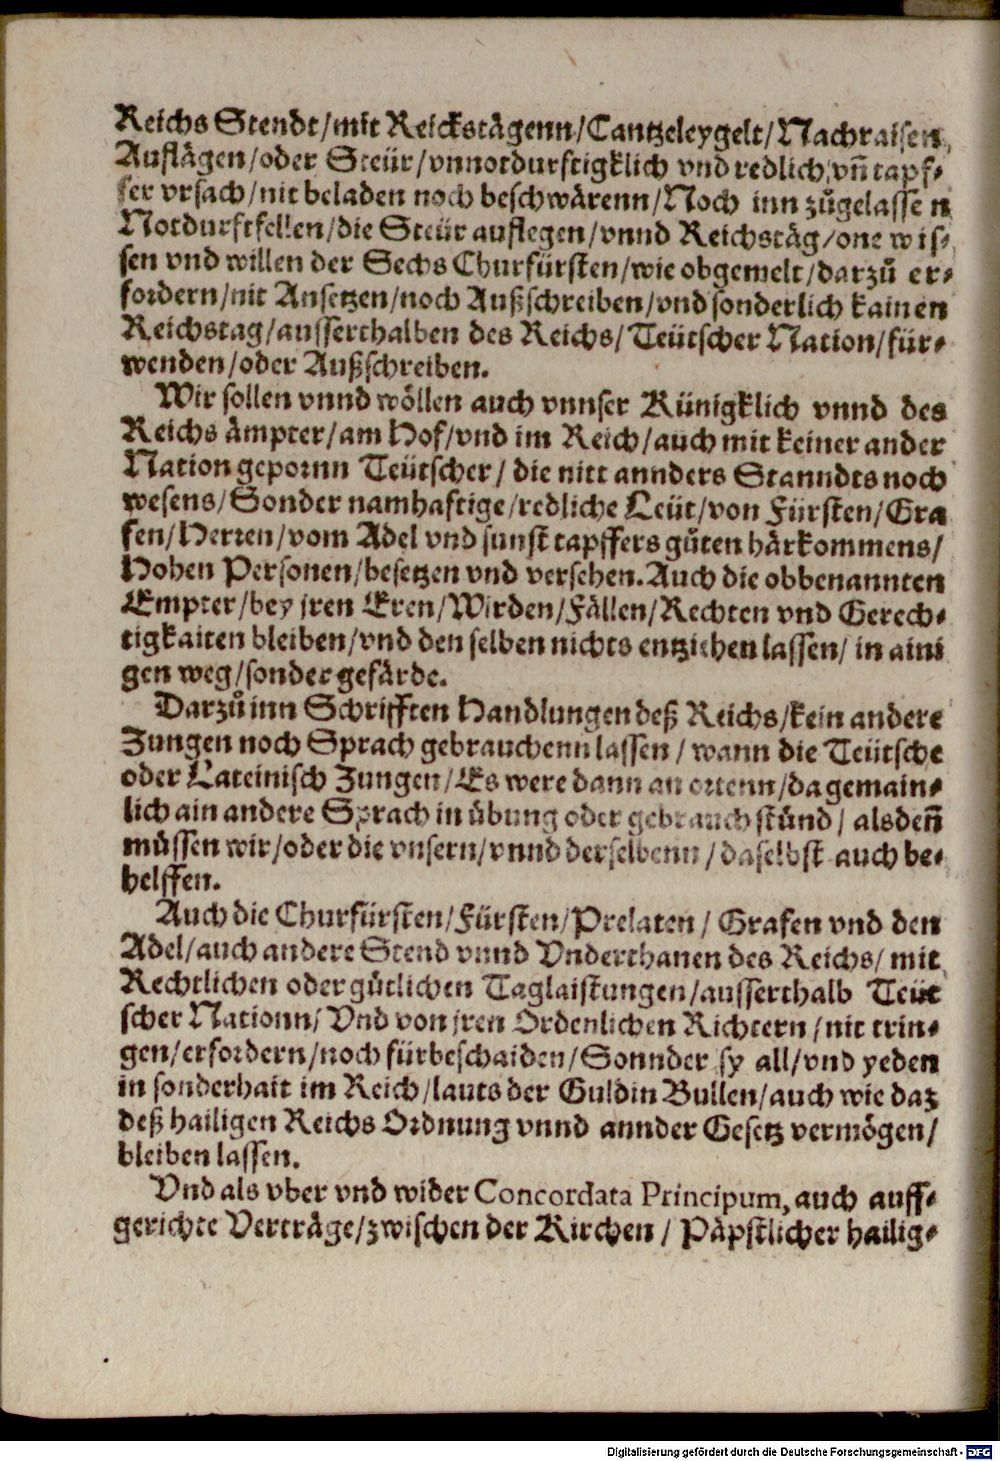 Reichs Stendt/mit Reickstägenn/Cantzeleygelt/Nachraisen,
Auflägen/oder Steür/vnnotdurftigklich vnd redlich/vñ tapf⸗
fer vrsach/nit beladen noch beschwärenn/Noch inn zůgelasse n
Notdurftfellen/die Steür auflegen/vnnd Reichstäg/one wis⸗
sen vnd willen der Sechs Churfürsten/wie obgemelt/darzů er⸗
fordern/nit Ansetzen/noch Außschreiben/vnd sonderlich kainen
Reichstag/ausserthalben des Reichs/Teütscher Nation/für⸗
wenden/oder Außschreiben.
Wir sollen vnnd wöllen auch vnnser Künigklich vnnd des
Reichs ämpter/am Hof/vnd im Reich/auch mit keiner ander
Nation gepornn Teütscher/die nitt annders Stanndts noch
wesens/Sonder namhaftige/redliche Leüt/von Fürsten/Gra
fen/Herren/vom Adel vnd sunst tapffers gůten härkommens/
Hohen Personen/besetzen vnd versehen.Auch die obbenannten
Empter/bey jren Eren/Wirden/Fällen/Rechten vnd Gerech⸗
tigkaiten bleiben/vnd den selben nichts entziehen lassen/in aini
gen weg/sonder gefärde.
Darzů inn Schrifften Handlungen deß Reichs/kein andere
Zungen noch Sprach gebrauchenn lassen/wann die Teütsche
oder Lateinisch Zungen/Es were dann an ortenn/da gemain⸗
lich ain andere Sprach in übung oder gebrauch stünd/alsdeñ
müssen wir/oder die vnsern/vnnd derselbenn/daselbst auch be⸗
helffen.
Auch die Churfürsten/Fürsten/Prelaten/Grafen vnd den
Adel/auch andere Stend vnnd Vnderthanen des Reichs/mit
Rechtlichen oder gütlichen Taglaistungen/ausserthalb Teüt
scher Nationn/Vnd von jren Ordenlichen Richtern/nit trin⸗
gen/erfordern/noch fürbeschaiden/Sonnder sy all/vnd yeden
in sonderhait im Reich/lauts der Guldin Bullen/auch wie daz
deß hailigen Reichs Ordnung vnnd annder Gesetz vermögen/
bleiben lassen.
Vnd als vber vnd wider Concordata Principum, auch auff⸗
gerichte Verträge/zwischen der Kirchen/Päpstlicher hailig⸗
Digitalisierung gefördert durch die Deutsche Forschungsgemeinschaft - DFG